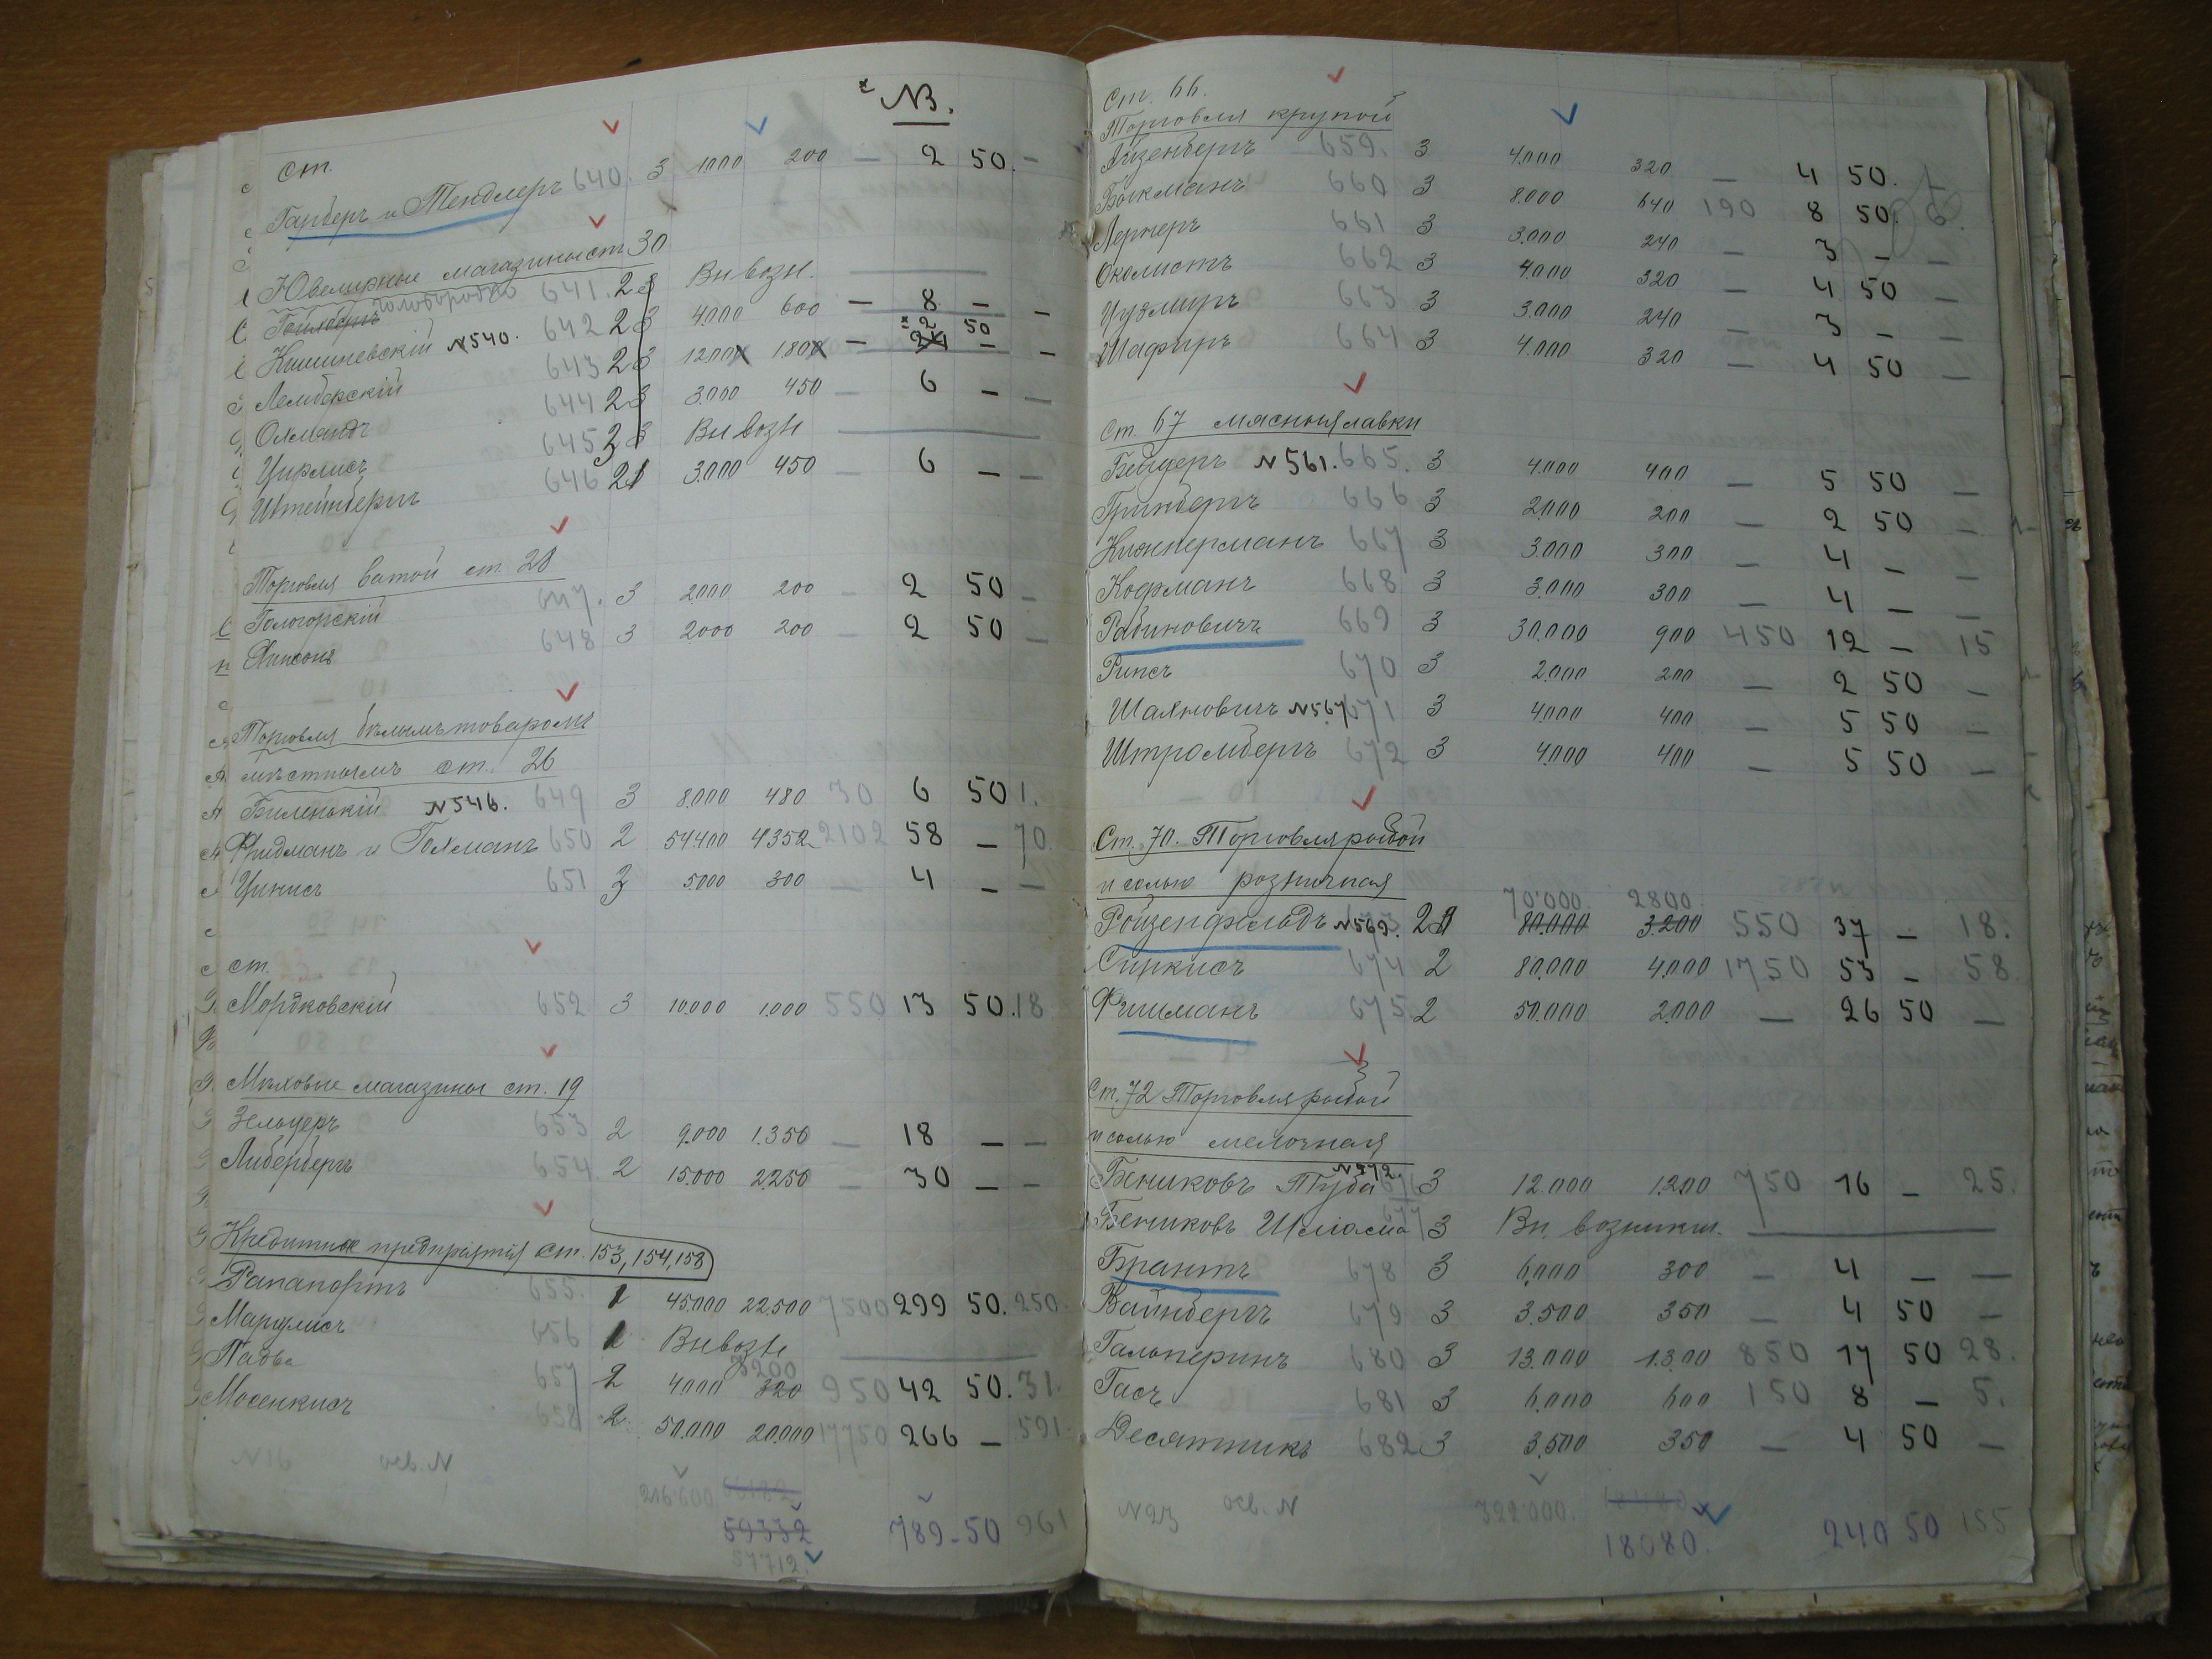 NB.
ст.
Ганберъ и Тендлеръ 640. 3 1000 200 — 2 50. —
Ювелирные магазины ст 30
Голобородько 641. 2 Вн возн.
Кишиневскій N540. 642 2 4000 600 — 8 — —
Лемберскій 643 2 12000 1800 — 2 50 —
644 2 3.000 450 — 6 — —
Цирлисъ 645 2 Вн возн
Штейнбергъ 646 2 3.000 450 — 6 — —
Торговля ватой ст. 28
Гологорскій 647. 3 2000 200 — 2 50 —
648 3 2000 200 — 2 50 —
Торговля бѣлымъ товаромъ
мѣстнымъ ст. 26
Биленькій N546. 649 3 8.000 480 30 6 50 1.
Фридманъ и Гохманъ 650 2 54400 4352 2102 58 — 70.
Цинисъ 651 3 5000 300 — 4 — —
ст.
Мордковскій 652 3 10.000 1.000 550 13 50. 18
Мѣховые магазины ст. 19
Зельцеръ 653 2 9.000 1.350 — 18 — —
Либербергъ 654 2 15.000 2250 — 30 — —
Кредитные предпріятія ст. 153, 154, 158
Рапапортъ 655. 1 45.000 22.500 7500 299 50. 250.
Маргулисъ 656 1 Вн возн
3200
Падва 657 2 4000 320 950 42 50. 31.
Мосенкисъ 658 2 50.000 20.000 17750 266 — 591.
осв. N
216.600
59332 789-50 961
57712.
Ст. 66.
Торговля крупой
Айзенбергъ 659. 3 4.000 320 — 4 50. —
Бокманъ 660 3 8.000 640 190 8 50. 6.
Лернеръ 661 3 3.000 240 — 3 — —
Околистъ 662 3 4.000 320 — 4 50 —
Цузмиръ 663 3 3.000 240 — 3 — —
Шафиръ 664 3 4.000 320 — 4 50 —
Ст. 67 мясныя лавки
Бендеръ N 561. 665. 3 4.000 400 — 5 50 —
Гринбергъ 666 3 2.000 200 — 2 50 —
Кижнерманъ 667 3 3.000 300 — 4 — —
Кофманъ 668 3 3.000 300 — 4 — —
Рабиновичъ 669 3 30.000 900 450 12 — 15
Рипсъ 670 3 2.000 200 — 2 50 —
Шаяновичъ N567 671 3 4.000 400 — 5 50 —
Штромбергъ 672 3 4.000 400 — 5 50 —
Ст. 70. Торговля рыбой
и солью розничная
70.000. 2800.
Ройзенфельдъ N569. 673 2 80.000 3.200 550 37 — 18.
Сиркисъ 674 2 80.000 4.000 1750 53 — 58
Фишманъ 675 2 50.000 2.000 — 26 50 —
Ст. 72 Торговля рыбой
и солью мелочная
N572.
Бениковъ Туба 676 3 12.000 1.200 750 16 — 25.
Бениковъ Шлiома 677 3 Вн. возникш.
Брантъ 678 3 6.000 300 — 4 — —
Вайнбергъ 679 3 3.500 350 — 4 50 —
Гальперинъ 680 3 13.000 1.300 850 17 50 28.
Гасъ 681 3 6.000 600 150 8 — 5.
Десятникъ 682 3 3.500 350 — 4 50 —
N23 осв. N 322.000.
18080. 240 50 155